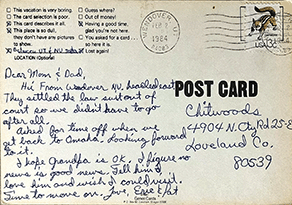 This vacation is very boring.
The card selection is poor.
This card describes it all.
This place is so dull,
they don't have any pictures
to show.
Between UT & NV
LOCATION (Optional)
Guess where?
Out of money!
Having a good time,
glad you're not here.
You asked for a card
so here it is.
Lost again!
WENDOVER, UT
1984
Dear Mom & Dad,
Hi! From Wendover NV, headed east
They settled the law suit out of
court so we didn't have to go
after all.
Asked for time off when we
get back to Omaha. Looking forward
to it.
I hope Grandpa is OK. I figure no
news is good news. Tell him I
love him and wish I could visit.
Time to move on. Love,
POST CARD
Chitwoods
14904 N. Cty Rd 25-E
Loveland Co.
80539